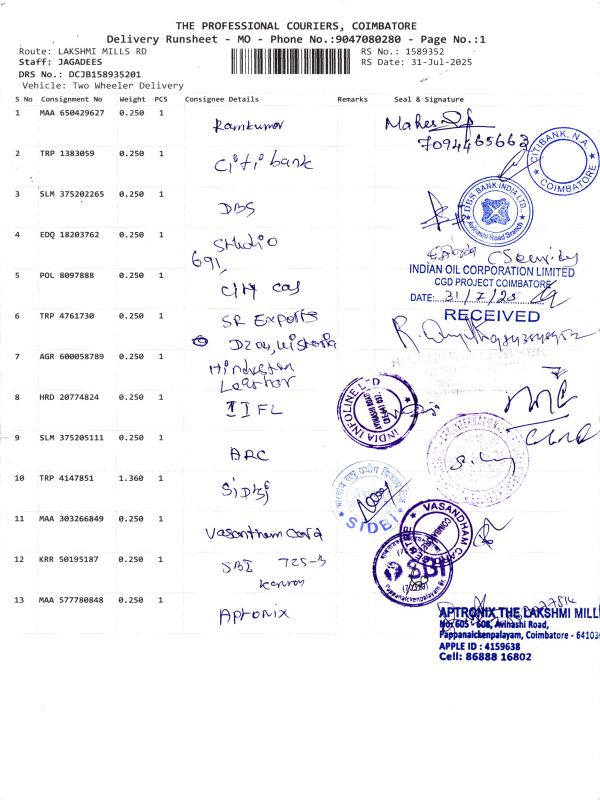 THE PROFESSIONAL COURIERS, COIMBATORE
Delivery Runsheet - MO - Phone No.:9047080280 - Page No.:1
Route: LAKSHMI MILLS RD
RS No.: 1589352
Staff: JAGADEES
RS Date: 31-Jul-2025
DRS No.: DCJB158935201
Vehicle: Two Wheeler Delivery
S No Consignment No Weight PCS Consignee Details Remarks Seal & Signature
1 MAA 650429627 0.250 1
Ramkumar
Mahes
7094465663
2 TRP 1383059 0.250 1
Citi bank
CITIBANK, N.A.
COIMBATORE
3 SLM 375202265 0.250 1
DBS
DBS BANK INDIA LTD.
Avinashi Road Branch
4 EDQ 18203762 0.250 1
Studio
691,
5 POL 8097888 0.250 1
City Gas
Security
INDIAN OIL CORPORATION LIMITED
CGD PROJECT COIMBATORE
DATE: 31/7/25
RECEIVED
6 TRP 4761730 0.250 1
SR Exports
7 AGR 600058789 0.250 1
Hindustan
8 HRD 20774824 0.250 1
IIFL
INDIA INFOLINE LTD
AVINASHI ROAD
9 SLM 375205111 0.250 1
ARC
10 TRP 4147851 1.360 1
Sidbi
SIDBI
11 MAA 303266849 0.250 1
Vasantham Card
VASANDHAM CARD
12 KRR 50195187 0.250 1
SBI 725-3
SBI
Pappanaickenpalayam Br.
13 MAA 577780848 0.250 1
Aptronix
APTRONIX THE LAKSHMI MILL
No: 605 - 608, Avinashi Road,
Pappanaickenpalayam, Coimbatore - 64103
APPLE ID : 4159638
Cell: 86888 16802